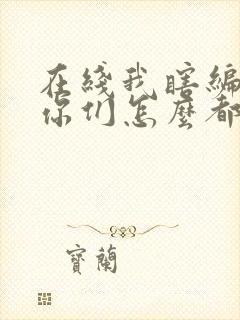 在綫我瞎編
你們怎麼都
寶蘭